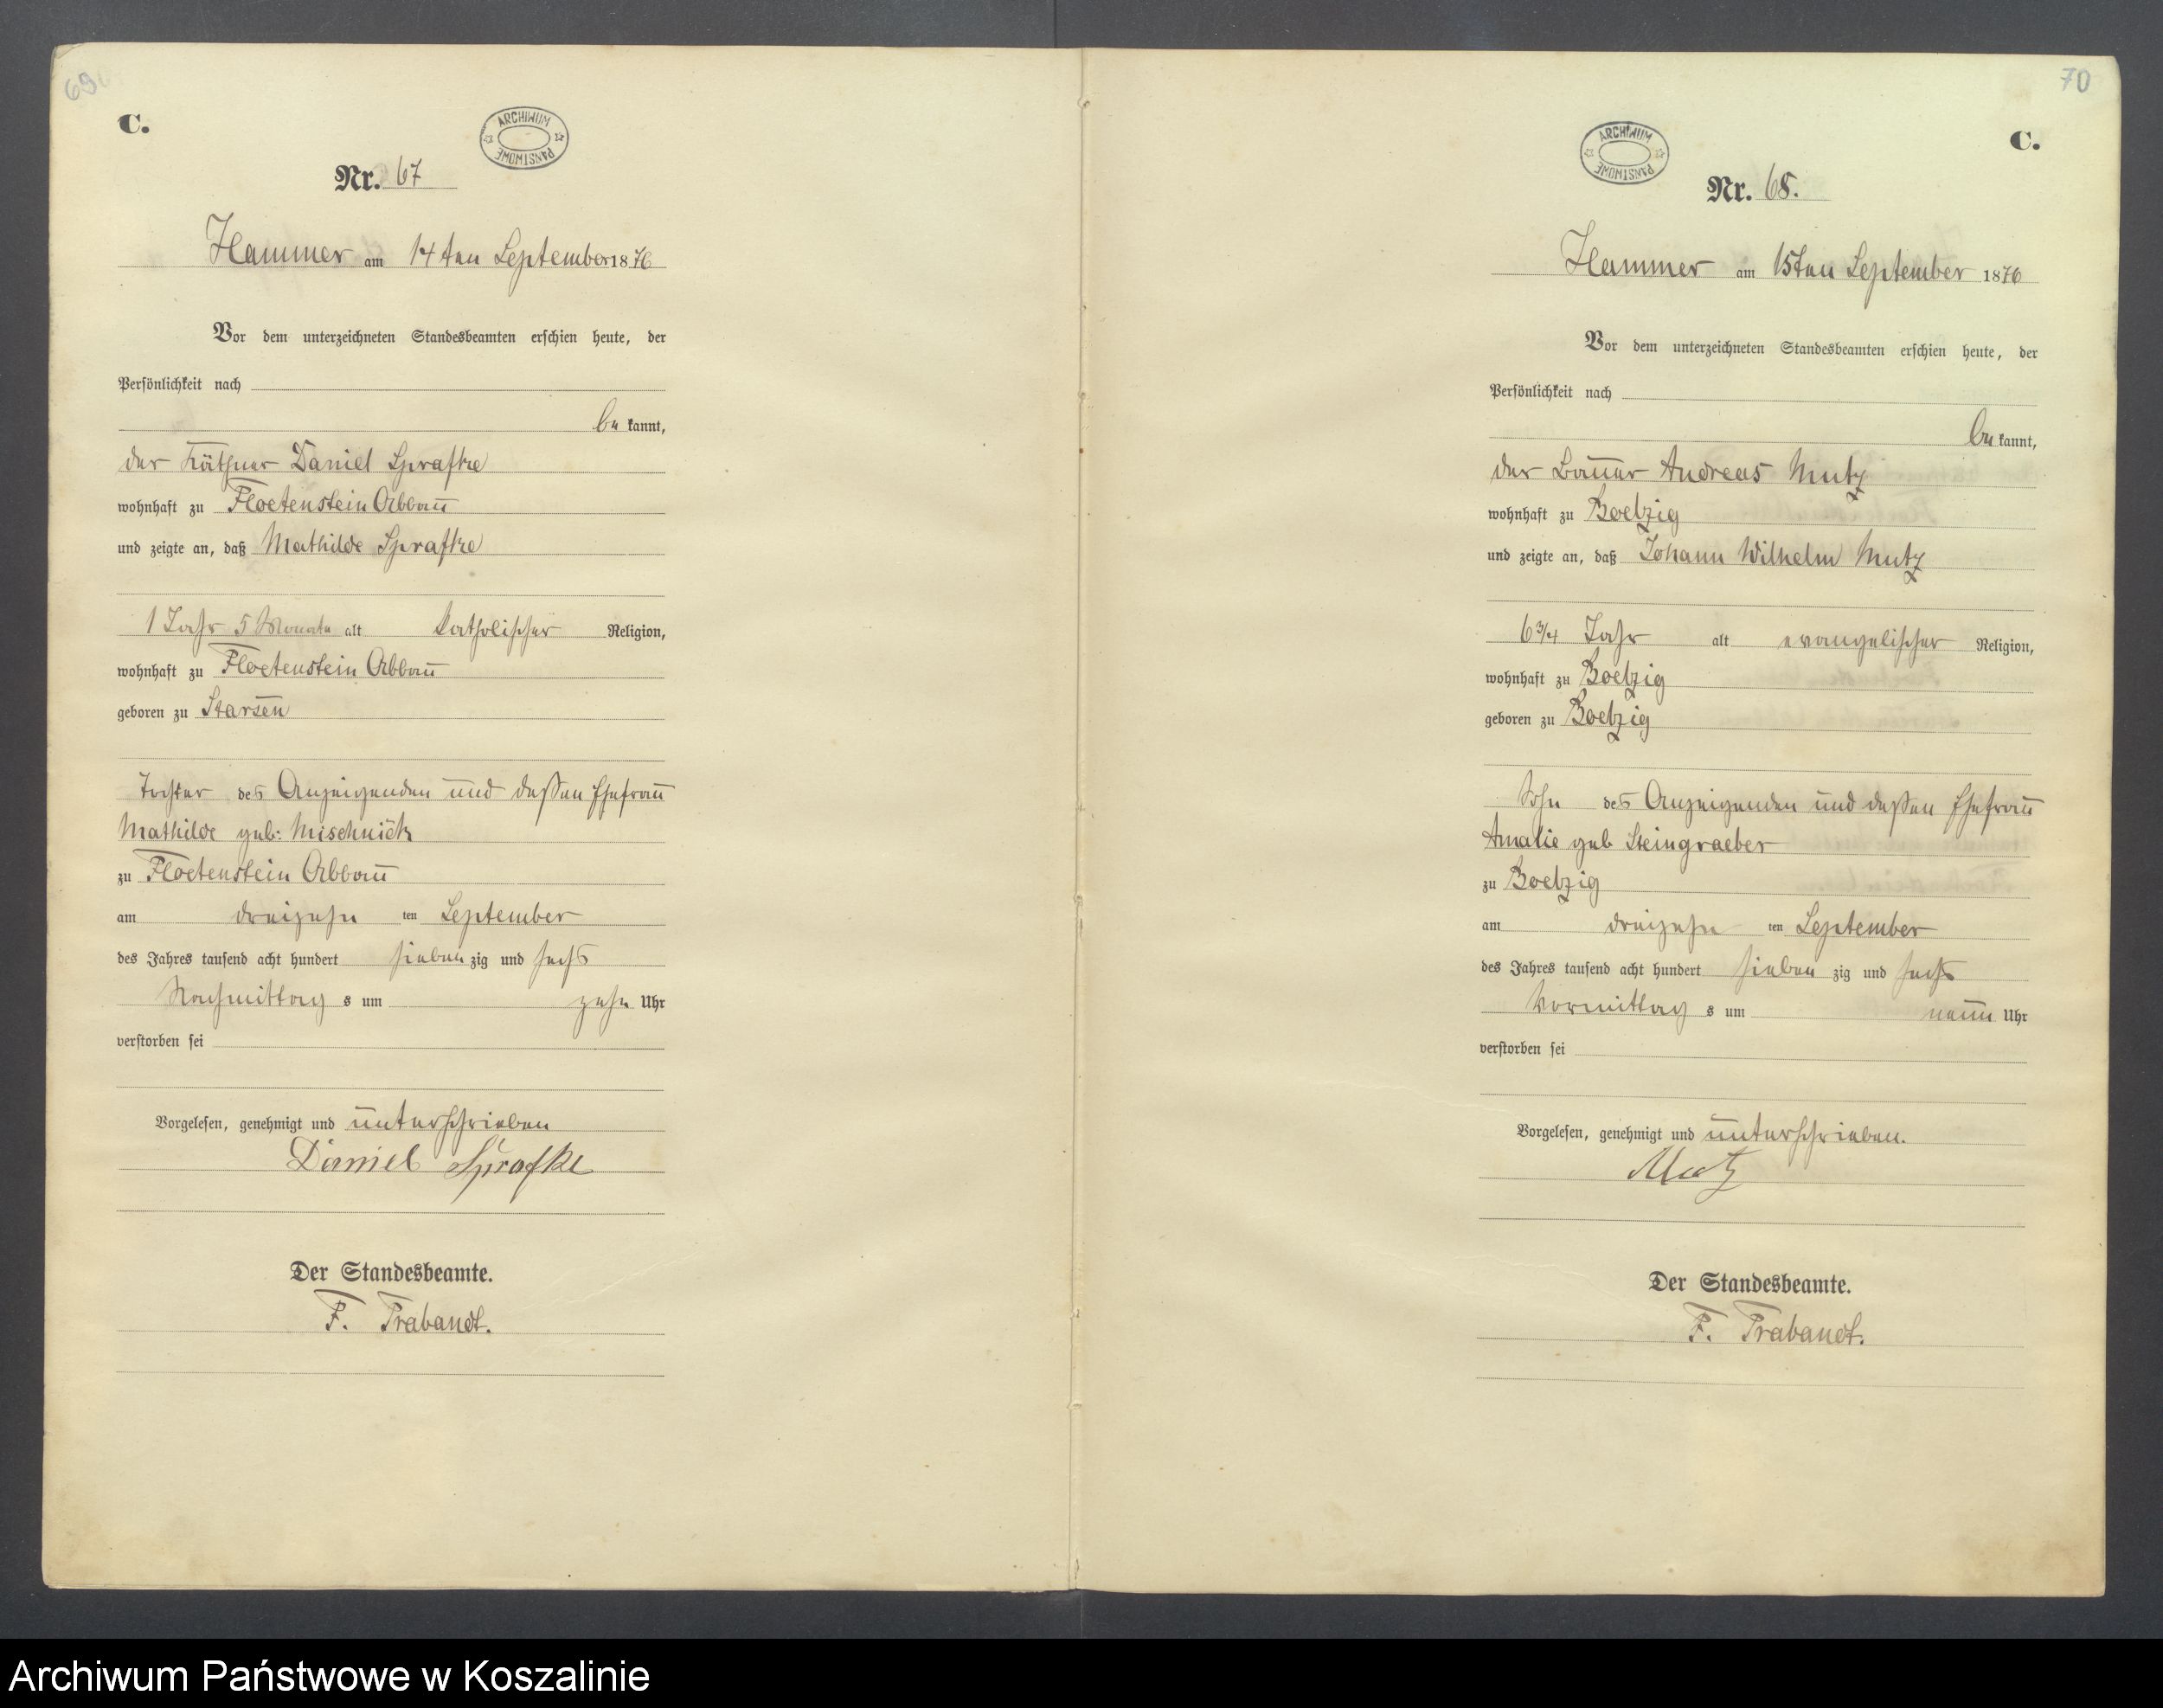 69
C.
ARCHIWUM PAŃSTWOWE
Nr. 67
Hammer am 14ten September 1876
Vor dem unterzeichneten Standesbeamten erschien heute, der
Persönlichkeit nach
bekannt,
der Käthner Daniel Sprafke
wohnhaft zu Floetenstein Abbau
und zeigte an, daß Mathilde Sprafke
1 Jahr 5 Monate alt katholischer Religion,
wohnhaft zu Floetenstein Abbau
geboren zu Starsen
Tochter des Anzeigenden und dessen Ehefrau
Mathilde geb: Mischnick
zu Floetenstein Abbau
am dreizehn ten September
des Jahres tausend acht hundert sieben zig und sechs
Nachmittag s um zehn Uhr
verstorben sei
Vorgelesen, genehmigt und unterschrieben
Daniel Sprafke
Der Standesbeamte.
F. Trabandt.
70
C.
ARCHIWUM PAŃSTWOWE
Nr. 68.
Hammer am 15ten September 1876
Vor dem unterzeichneten Standesbeamten erschien heute, der
Persönlichkeit nach
bekannt,
der Bauer Andreas Mutz
wohnhaft zu Boelzig
und zeigte an, daß Johann Wilhelm Mutz
6 3/4 Jahr alt evangelischer Religion,
wohnhaft zu Boelzig
geboren zu Boelzig
Sohn des Anzeigenden und dessen Ehefrau
Amalie geb Steingraeber
zu Boelzig
am dreizehn ten September
des Jahres tausend acht hundert sieben zig und sechs
Vormittag s um neun Uhr
verstorben sei
Vorgelesen, genehmigt und unterschrieben.
Mutz
Der Standesbeamte.
F. Trabandt.
Archiwum Państwowe w Koszalinie